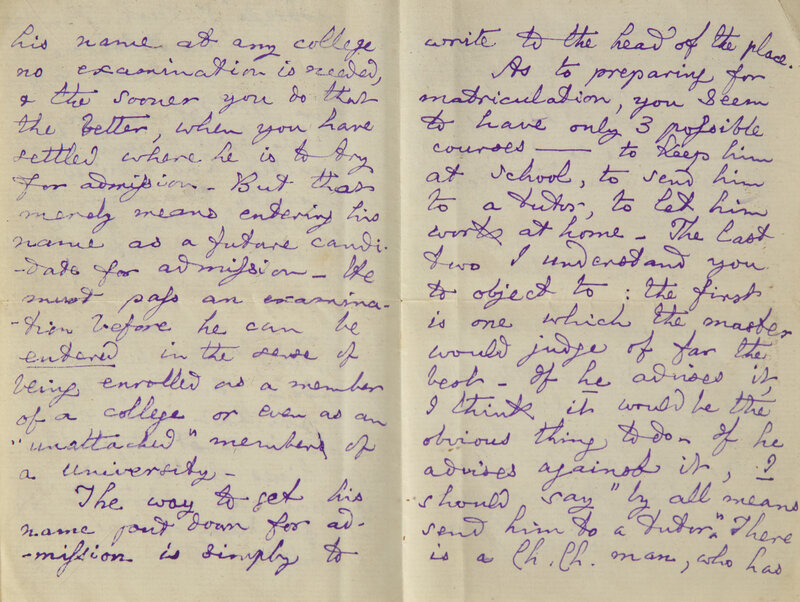 his name at any college
no examination is needed,
& the sooner you do that
the better, when you have
settled where he is to try
for admission - But that
merely means entering his
name as a future candi-
-date for admission - He
must pass an examina-
-tion before he can be
entered in the sense of
being enrolled as a member
of a college or even as an
"unattached" member of
a university -
The way to get his
name put down for ad-
-mission is simply to
write to the head of the place.
As to preparing for
matriculation, you seem
to have only 3 possible
courses — to keep him
at school, to send him
to a tutor, to let him
work at home - The last
two I understand you
to object to : the first
is one which the master
would judge of far the
best - If he advises it,
I think it would be the
obvious thing to do - If he
advises against it, I
should say "by all means
send him to a tutor." There
is a Ch. Ch. man, who has